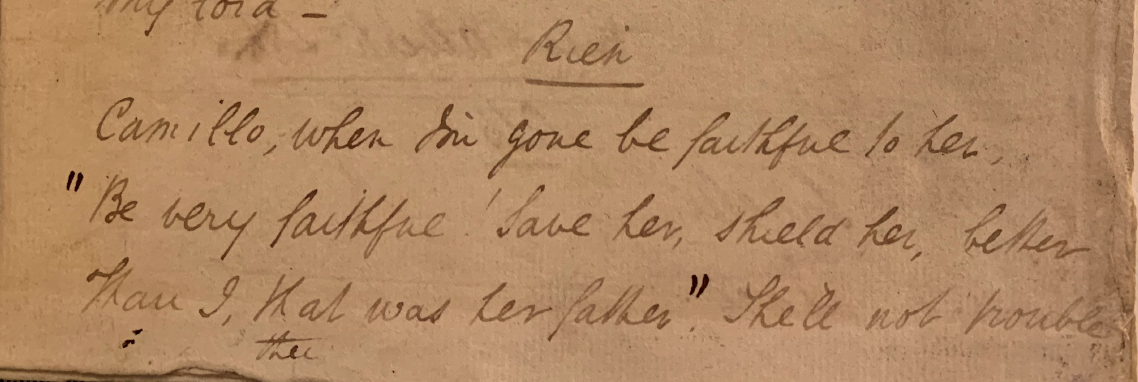 my lord –
Rien
Camillo, when I'm gone be faithful to her,
"Be very faithful! Save her, shield her, better
Than I, that was her father". She'll not trouble
thee